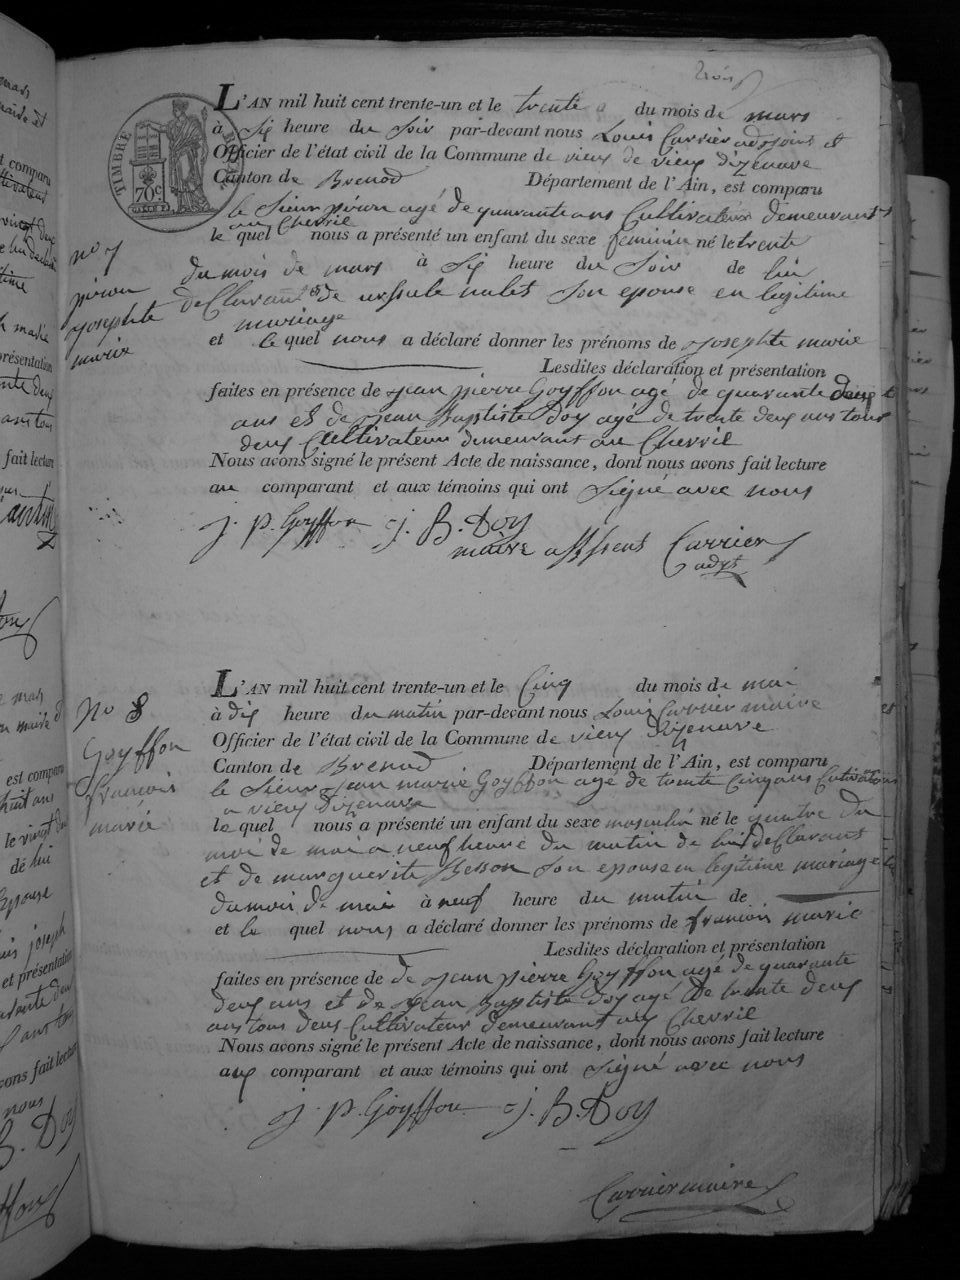 trois
TIMBRE ROYAL
70c
L'AN mil huit cent trente-un et le trente du mois de mars
à Six heure du Soir par-devant nous Louis Carrier adjoint et
Officier de l'état civil de la Commune de vieux de vieux dizenave
Canton de Brenod Département de l'Ain, est comparu
le Sieur piron agé de quarante ans Cultivateur demeurant
au Chevril
le quel nous a présenté un enfant du sexe feminin né le trente
no 7
du mois de mars à Six heure du Soir de lui
piron
josephte
marie
declarant et de ursule nalet Son epouse en legitime
mariage
et le quel nous a déclaré donner les prénoms de josephte marie
Lesdites déclaration et présentation
faites en présence de jean pierre Goyffon agé de quarante deux
ans et de jean Baptiste Doy agé de trente deux ans tous
deux Cultivateur demeurant au Chevril
Nous avons signé le présent Acte de naissance, dont nous avons fait lecture
au comparant et aux témoins qui ont Signé avec nous
j. p. Goyffon j. B. Doy
maire absent Carrier
adjt
L'AN mil huit cent trente-un et le Cinq du mois de mai
no 8
à dix heure du matin par-devant nous Louis Carrier maire et
Officier de l'état civil de la Commune de vieux dizenave
Goyffon
francois
marie
Canton de Brenod Département de l'Ain, est comparu
le Sieur jean marie Goyffon agé de trente Cinq ans Cultivateur
a vieux dizenave
le quel nous a présenté un enfant du sexe masculin né le quatre du
moi de mai a neuf heure du matin de lui declarant
et de marguerite Besson Son epouse en legitime mariage
du mois de mai à neuf heure du matin de
et le quel nous a déclaré donner les prénoms de francois marie
Lesdites déclaration et présentation
faites en présence de de jean pierre Goyffon agé de quarante
deux ans et de jean Baptiste Doy agé de trente deux
ans tous deux Cultivateur demeurant au Chevril
Nous avons signé le présent Acte de naissance, dont nous avons fait lecture
aux comparant et aux témoins qui ont Signé avec nous
j. p. Goyffon j. B. Doy
Carrier maire